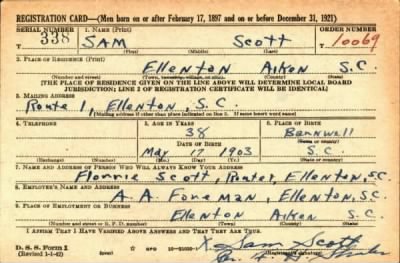 REGISTRATION CARD—(Men born on or after February 17, 1897 and on or before December 31, 1921)
SERIAL NUMBER 1. NAME (Print) ORDER NUMBER
338 SAM Scott 10069
(First) (Middle) (Last)
2. PLACE OF RESIDENCE (Print)
Ellenton Aiken S.C.
(Number and street) (Town, township, village, or city) (County) (State)
[THE PLACE OF RESIDENCE GIVEN ON THE LINE ABOVE WILL DETERMINE LOCAL BOARD
JURISDICTION; LINE 2 OF REGISTRATION CERTIFICATE WILL BE IDENTICAL]
3. MAILING ADDRESS
Route 1, Ellenton, S.C.
(Mailing address if other than place indicated on line 2. If same insert word same)
4. TELEPHONE 5. AGE IN YEARS 6. PLACE OF BIRTH
38 Barnwell
DATE OF BIRTH (Town or county)
May 17 1903 S.C.
(Exchange) (Number) (Mo.) (Day) (Yr.) (State or country)
7. NAME AND ADDRESS OF PERSON WHO WILL ALWAYS KNOW YOUR ADDRESS
Florrie Scott, Ellenton, S.C.
8. EMPLOYER'S NAME AND ADDRESS
A. A. Foreman, Ellenton, S.C.
9. PLACE OF EMPLOYMENT OR BUSINESS
Ellenton Aiken S.C.
(Number and street or R. F. D. number) (Town) (County) (State)
I AFFIRM THAT I HAVE VERIFIED ABOVE ANSWERS AND THAT THEY ARE TRUE.
D. S. S. Form 1 GPO X Sam Scott
(Revised 1-1-42)